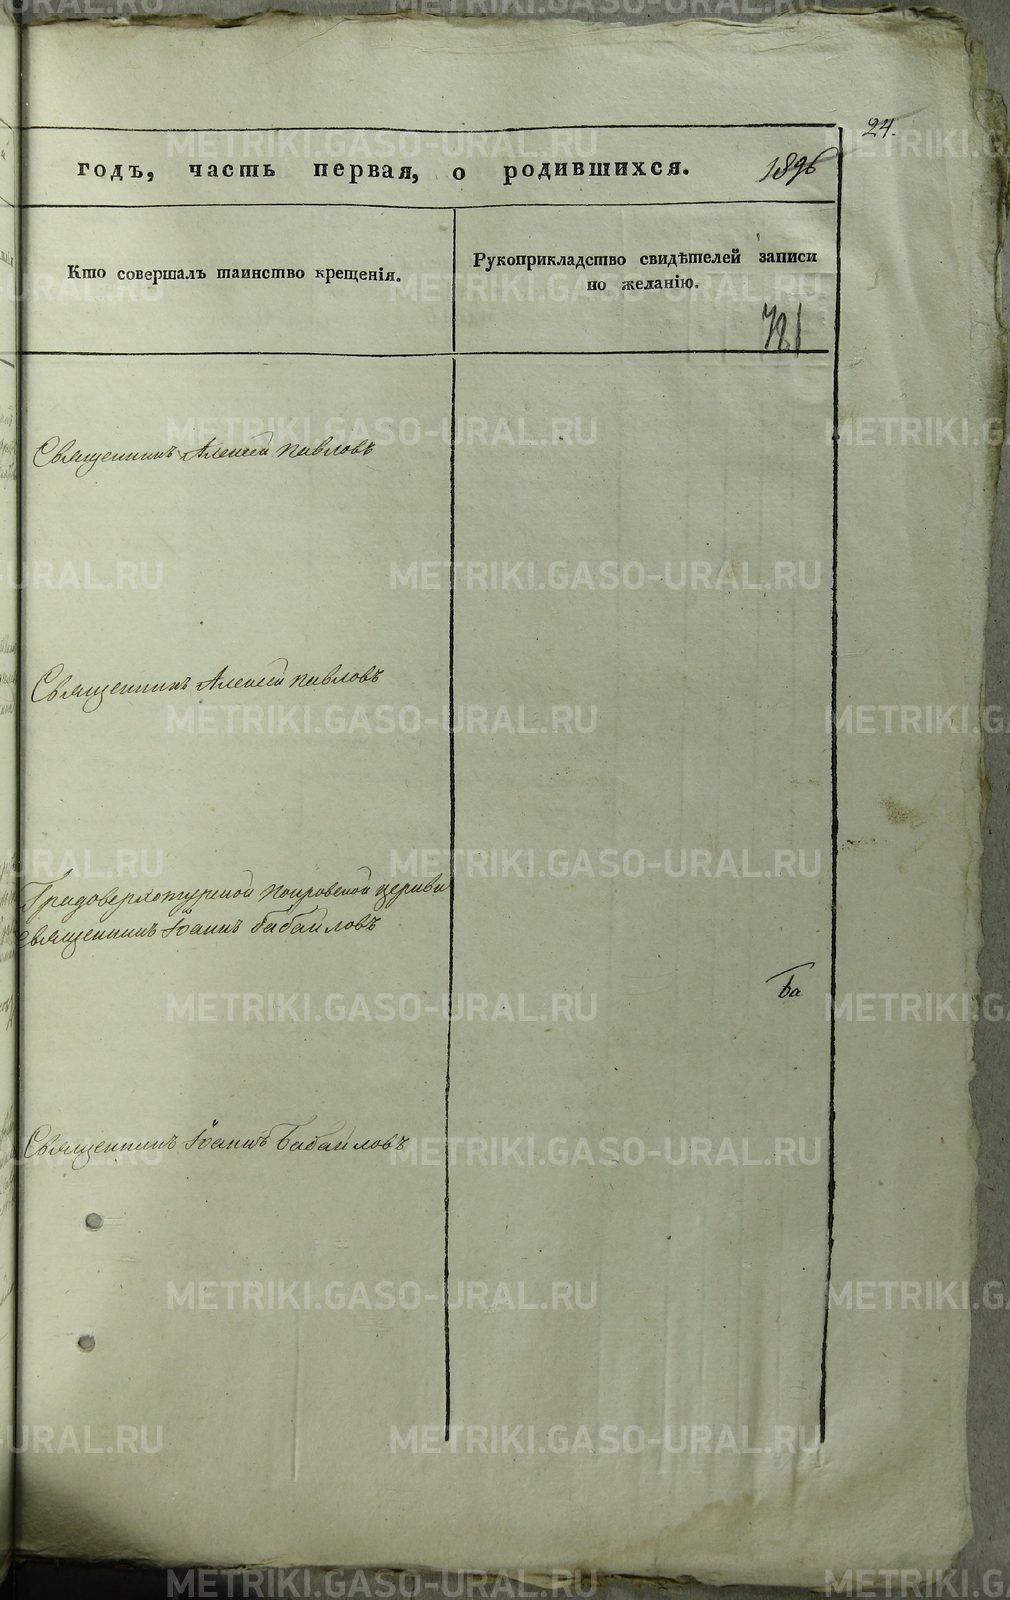 24.
годъ, часть первая, о родившихся.
1896
Кто совершалъ таинство крещенія.
Рукоприкладство свидѣтелей записи
по желанію.
781
Священникъ Алексѣй Павловъ
Священникъ Алексѣй Павловъ
Градоверхотурской Покровской церкви
священникъ Іоаннъ Бабайловъ
Священникъ Іоаннъ Бабайловъ
METRIKI.GASO-URAL.RU